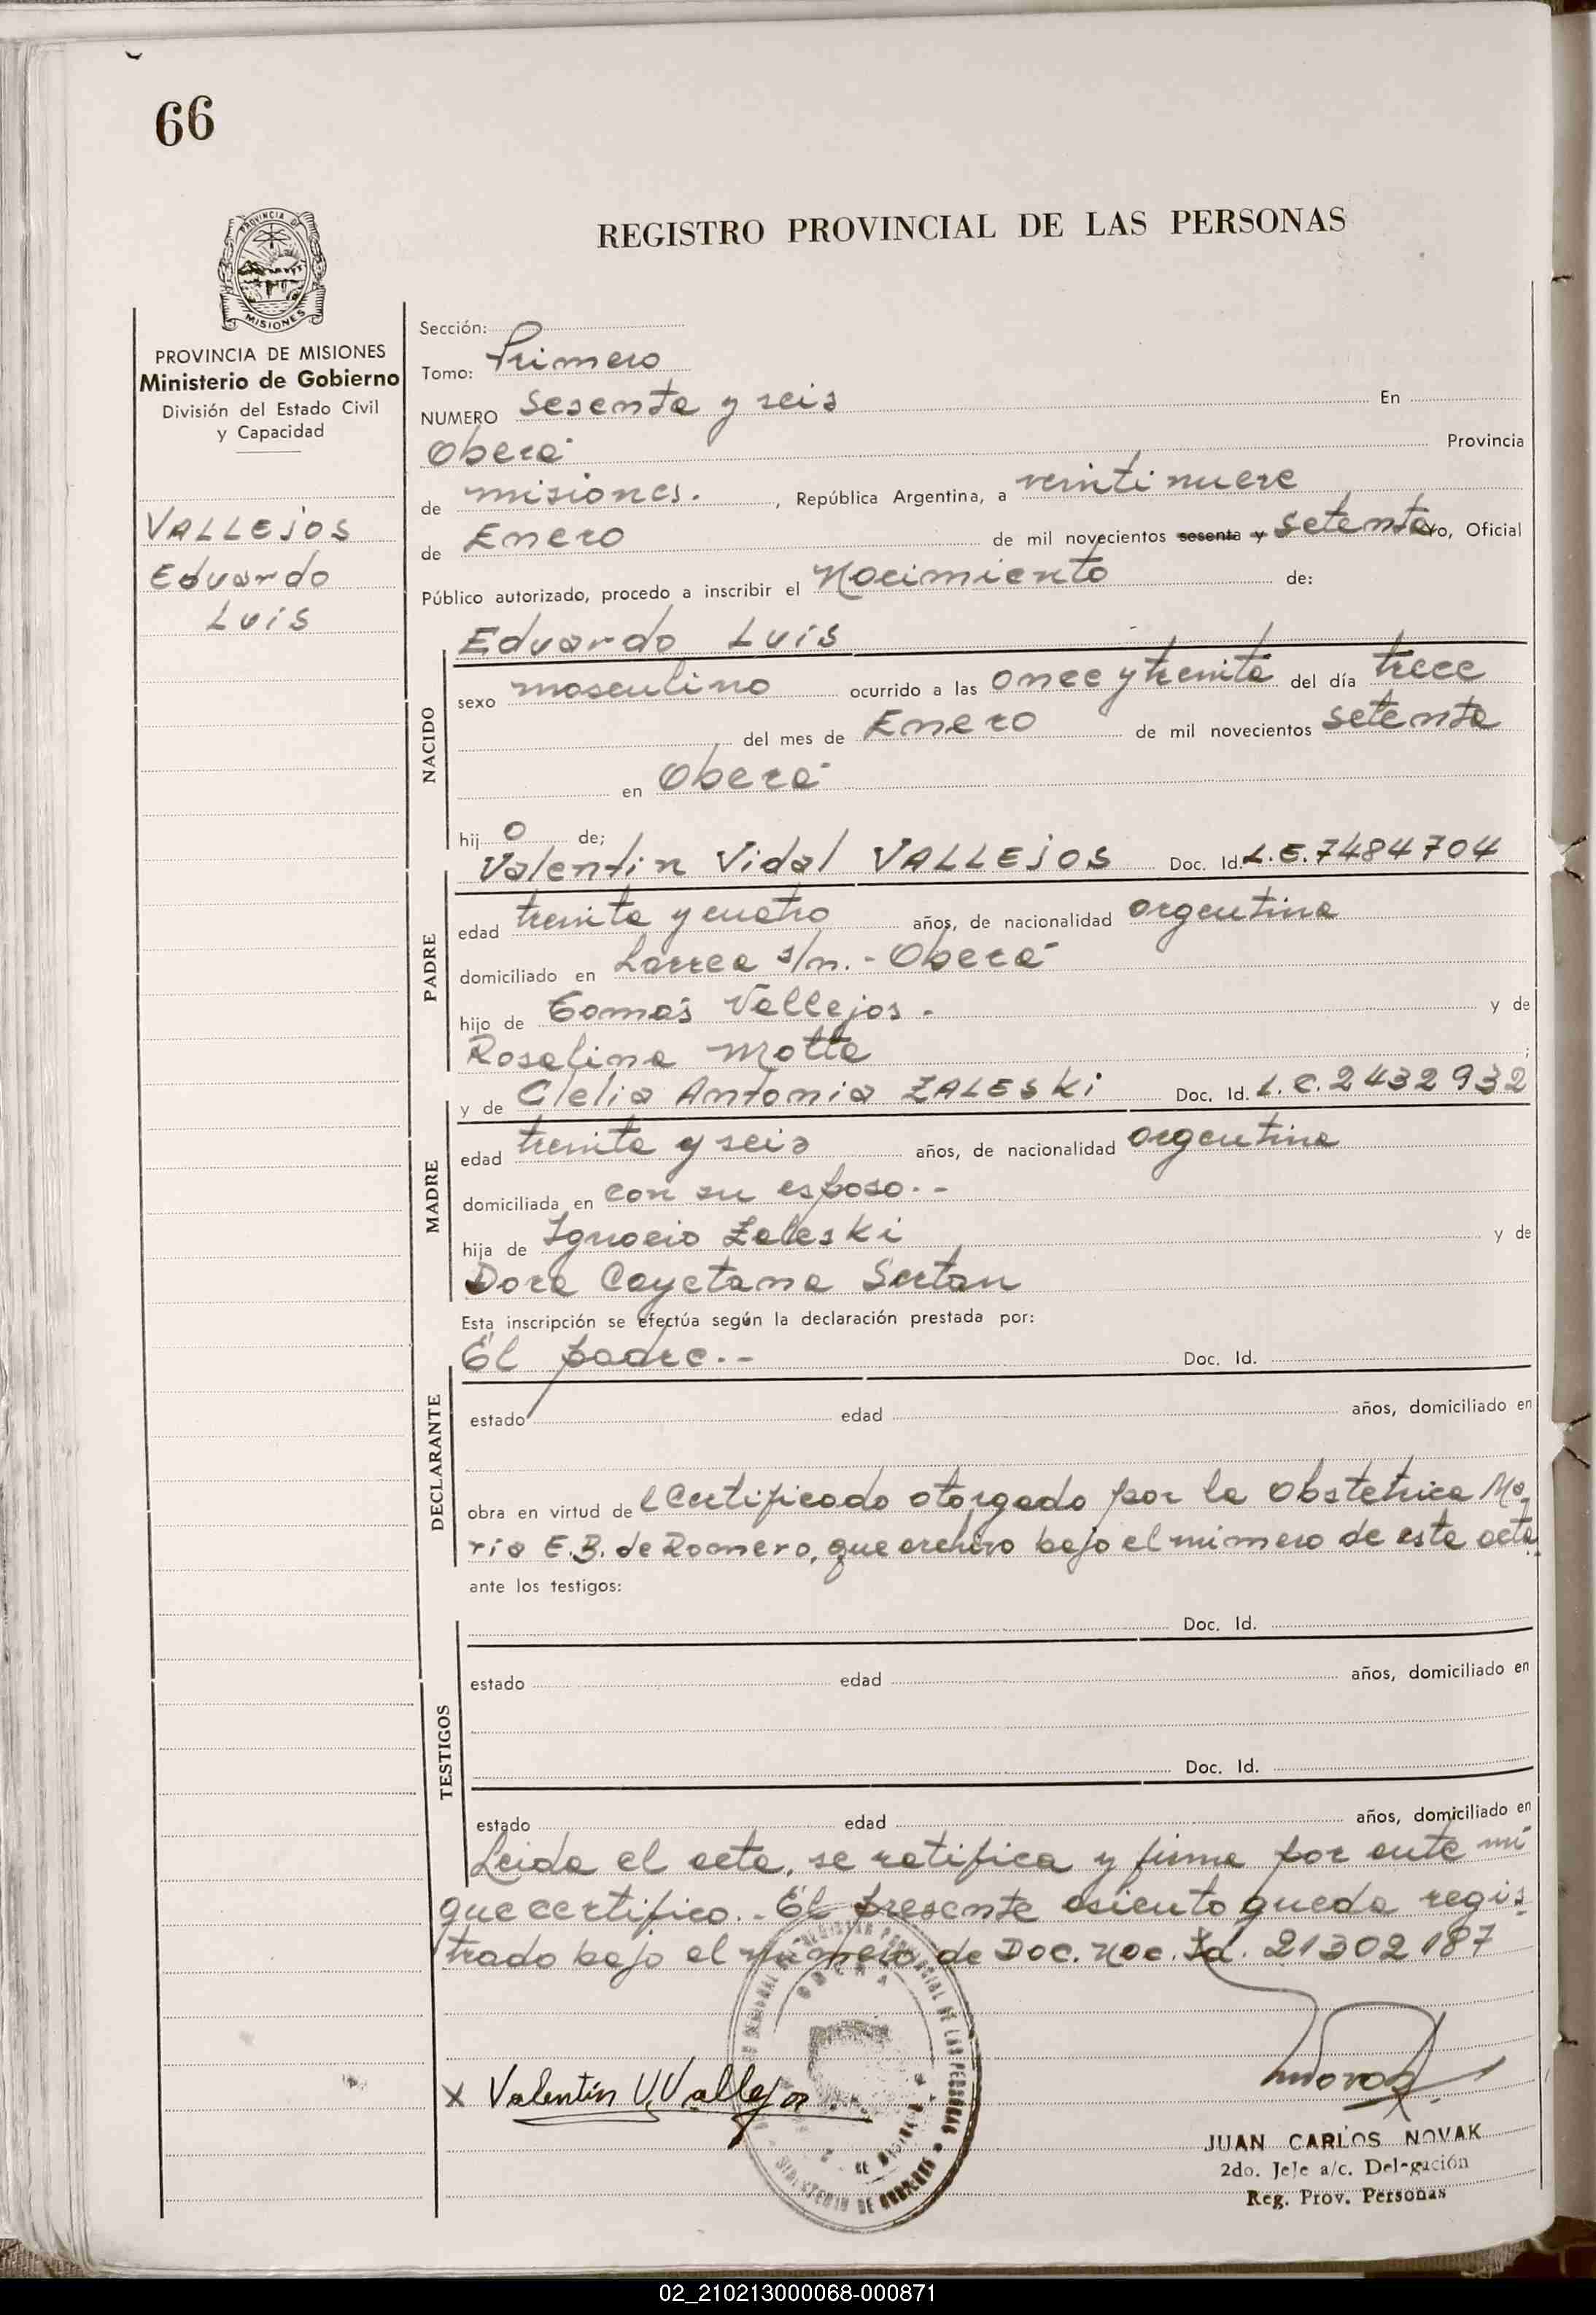 66
PROVINCIA DE
MISIONES
REGISTRO PROVINCIAL DE LAS PERSONAS
PROVINCIA DE MISIONES
Ministerio de Gobierno
División del Estado Civil
y Capacidad
VALLEJOS
Eduardo
Luis
Sección:
Tomo: Primero
NUMERO Sesenta y seis En
Oberá Provincia
de misiones. , República Argentina, a veinti nueve
de Enero de mil novecientos sesenta y setenta Yo, Oficial
Público autorizado, procedo a inscribir el Nacimiento de:
Eduardo Luis
NACIDO
sexo masculino ocurrido a las once y treinta del día trece
del mes de Enero de mil novecientos setenta
en Oberá
hij o de;
Valentin Vidal VALLEJOS Doc. Id. L.E. 7484704
PADRE
edad treinta y cuatro años, de nacionalidad argentina
domiciliado en Larrea s/n. - Oberá
hijo de Tomás Vallejos. y de
Rosalina Motta ;
y de Clelia Antonia ZALESKI Doc. Id. L.C. 2432932
MADRE
edad treinta y seis años, de nacionalidad argentina
domiciliada en con su esposo.-
hija de Ignacio Zaleski y de
Dora Cayetana Sertan
Esta inscripción se efectúa según la declaración prestada por:
El padre.- Doc. Id.
DECLARANTE
estado edad años, domiciliado en
obra en virtud de l certificado otorgado por la Obstetrica Ma-
ria E.B. de Romero, que archivo bajo el número de este acta
ante los testigos:
Doc. Id.
TESTIGOS
estado edad años, domiciliado en
Doc. Id.
estado edad años, domiciliado en
Leida el acta, se ratifica y firma por ante mí
que certifico.- El presente asiento queda regis-
trado bajo el número de Doc. Nac. Id. 21302187
OBERA
REGISTRO PROVINCIAL DE LAS PERSONAS
MINISTERIO DE GOBIERNO
X Valentín V. Vallejos
JUAN CARLOS NOVAK
2do. Jefe a/c. Delegación
Reg. Prov. Personas
02_210213000068-000871